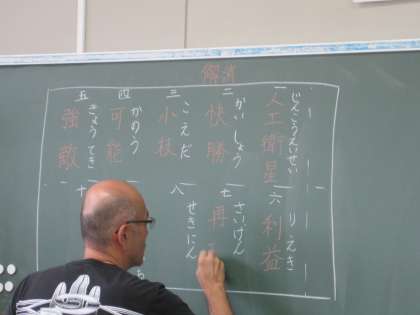 解消
一
じんこうえいせい
人工衛星
二
かいしょう
快勝
三
こえだ
小枝
四
かのう
可能
五
きょうてき
強敵
六
りえき
利益
七
さいけん
再
八
せきにん
十